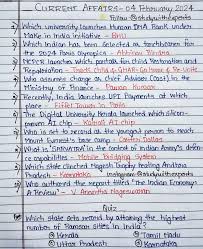 CURRENT AFFAIRS - 04 February 2024
Follow @studywithexperts
Which university launches Human DNA Bank under
Make in India initiative - BHU
Which Indian has been selected as torchbearer for
the 2024 Paris Olympics - Abhinav Bindra
NCPCR launches which portals for child Restoration and
Repatriation - Track child & GHAR - Go Home & Re-Unite
Who assumes charge as Chief Advisor (Cost) in the
Ministry of Finance - Pawan Kumar
Recently, India launches UPI Payments at which
place - Eiffel Tower in Paris
The Digital University Kerala launched which silicon-
proven AI chip - Kairali AI chip
Who is set to become the youngest person to reach
Mount Everest's base camp - Carter Dallas
What is 'SARVATRA' in the context of Indian Army's defen-
ce capabilities - Mobile Bridging System
Which state clinched Nagesh Trophy beating Andhra
Pradesh - Karnataka Instagram @studywithexperts
Who authored the report titled "The Indian Economy:
A Review" - V Anantha Nageswaran
QUIZ
Which state acts record by attaining the highest
number of Ramsar sites in India?
Kerala Tamil Nadu
Uttar Pradesh Karnataka